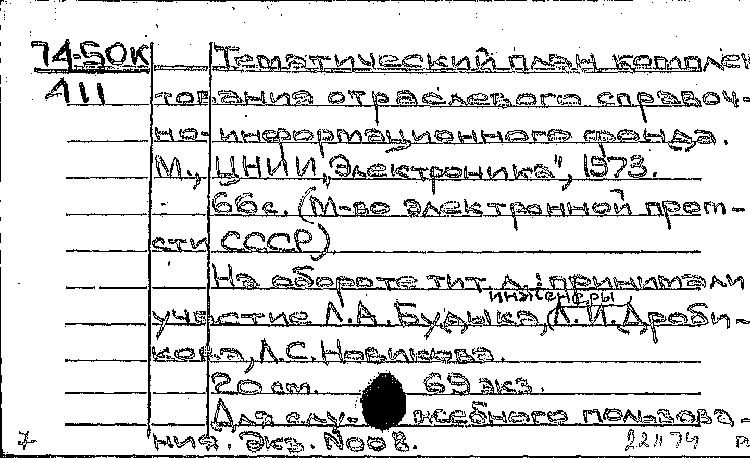 74-50К Тематический план комплек
А11 тования отраслевого справоч-
но-информационного фонда.
М., ЦНИИ „Электроника", 1973.
66 с. (М-во электронной пром-
сти СССР)
На обороте тит. л.: принимали
инженеры
участие Л.А. Будыка, Л.И. Дроби-
кова, Л.С. Новикова.
20 см. 69 экз.
Для слу- жебного пользова-
7 ния. Экз. №008. 221174